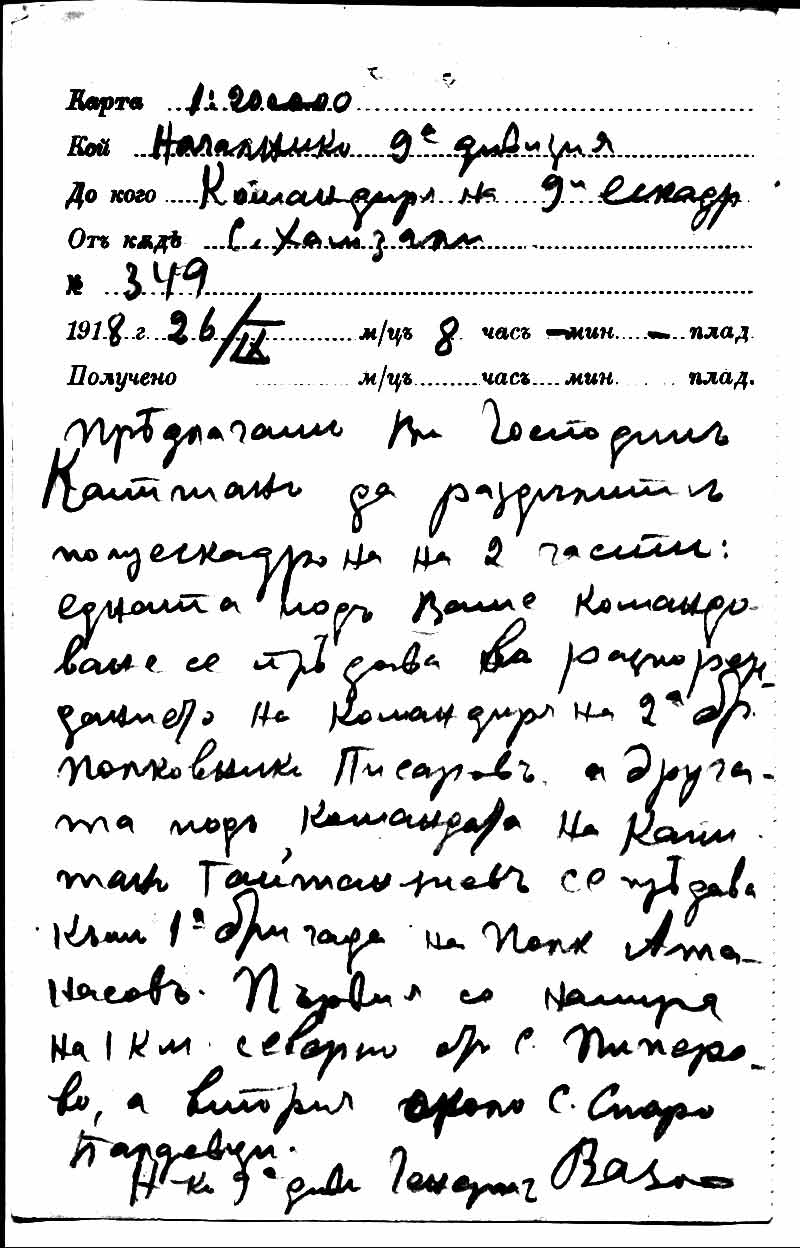 Карта 1:200000
Кой Началника 9ª дивизия
До кого Командира на 9й ескадр
Отъ кѫдѣ с. Хамзали
№ 349
1918 г 26/IX м/цъ 8 часъ — мин. — плад
Получено м/цъ часъ мин. плад.
Прѣдлагамъ Ви Господинъ
Капитанъ да раздѣлите
полуескадрона на 2 части:
едната подъ Ваше командо-
ване се прѣдава въ разпореж-
дането на командира на 2ª бр.
полковникъ Писаровъ, а друга-
та подъ командата на Капи
танъ се прѣдава
към 1ª бригада на Полк Ата-
насовъ. Първия се намира
на 1 км. северно от с. Пиперо-
во, а втория около с. Старо
Н-къ 9ª див Генералъ Вазов